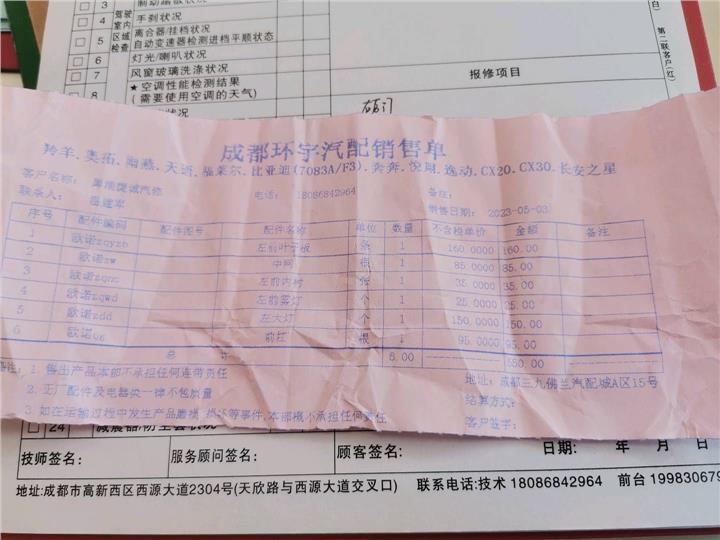 3
4
5
6
7
8
驾驶
室内
区域
检查
制动踏板状况
手刹状况
离合器/挂档状况
自动变速器检测进档平顺状态
灯光/喇叭状况
风窗玻璃洗涤状况
★空调性能检测结果
(需要使用空调的天气)
状况
报修项目
白)
第二联客户(红)
成都环宇汽配销售单
羚羊、奥拓、雨燕、天语、福莱尔、比亚迪(7083A/F3)、奔奔、悦翔、逸动、CX20、CX30、长安之星
客户名称:
诚汽修
电话: 18086842964
备注:
联系人:
销售日期: 2023-05-03
序号 配件编码 配件图号 配件名称 单位 数量 不含税单价 金额 备注
1 欧诺zqyzb 左前叶子板 条 1 160.0000 160.00
2 欧诺zw 中网 1 85.0000 85.00
3 欧诺zqnc 左前内衬 张 1 35.0000 35.00
4 欧诺zqwd 左前雾灯 个 1 25.0000 25.00
5 欧诺zdd 左大灯 个 1 150.0000 150.00
6 欧诺 前杠 根 1 95.0000 95.00
总 计 6.00 550.00
备注: 1. 售出产品本部不承担任何连带责任
2. 正厂配件及电器类一律不包质量
3. 如在运输过程中发生产品磨损、损坏等事件,本部概不承担任何责任
地址: 成都三九佛兰汽配城A区15号
结算方式:
客户签字:
24 减震器/防尘套状况
技师签名: 服务顾问签名: 顾客签名: 日期: 年 月 日
地址:成都市高新西区西源大道2304号(天欣路与西源大道交叉口) 联系电话:技术 18086842964 前台 199830679